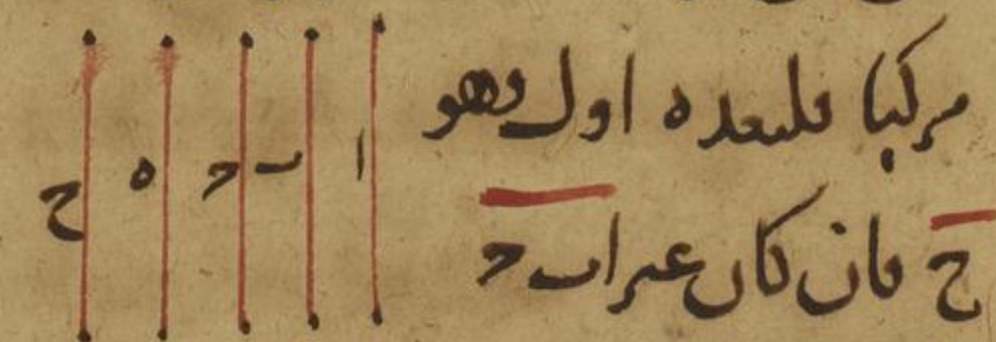 مركبا فليعده اول وهو
ح فان كان غير ا ب ج
ا ب ج ه ح